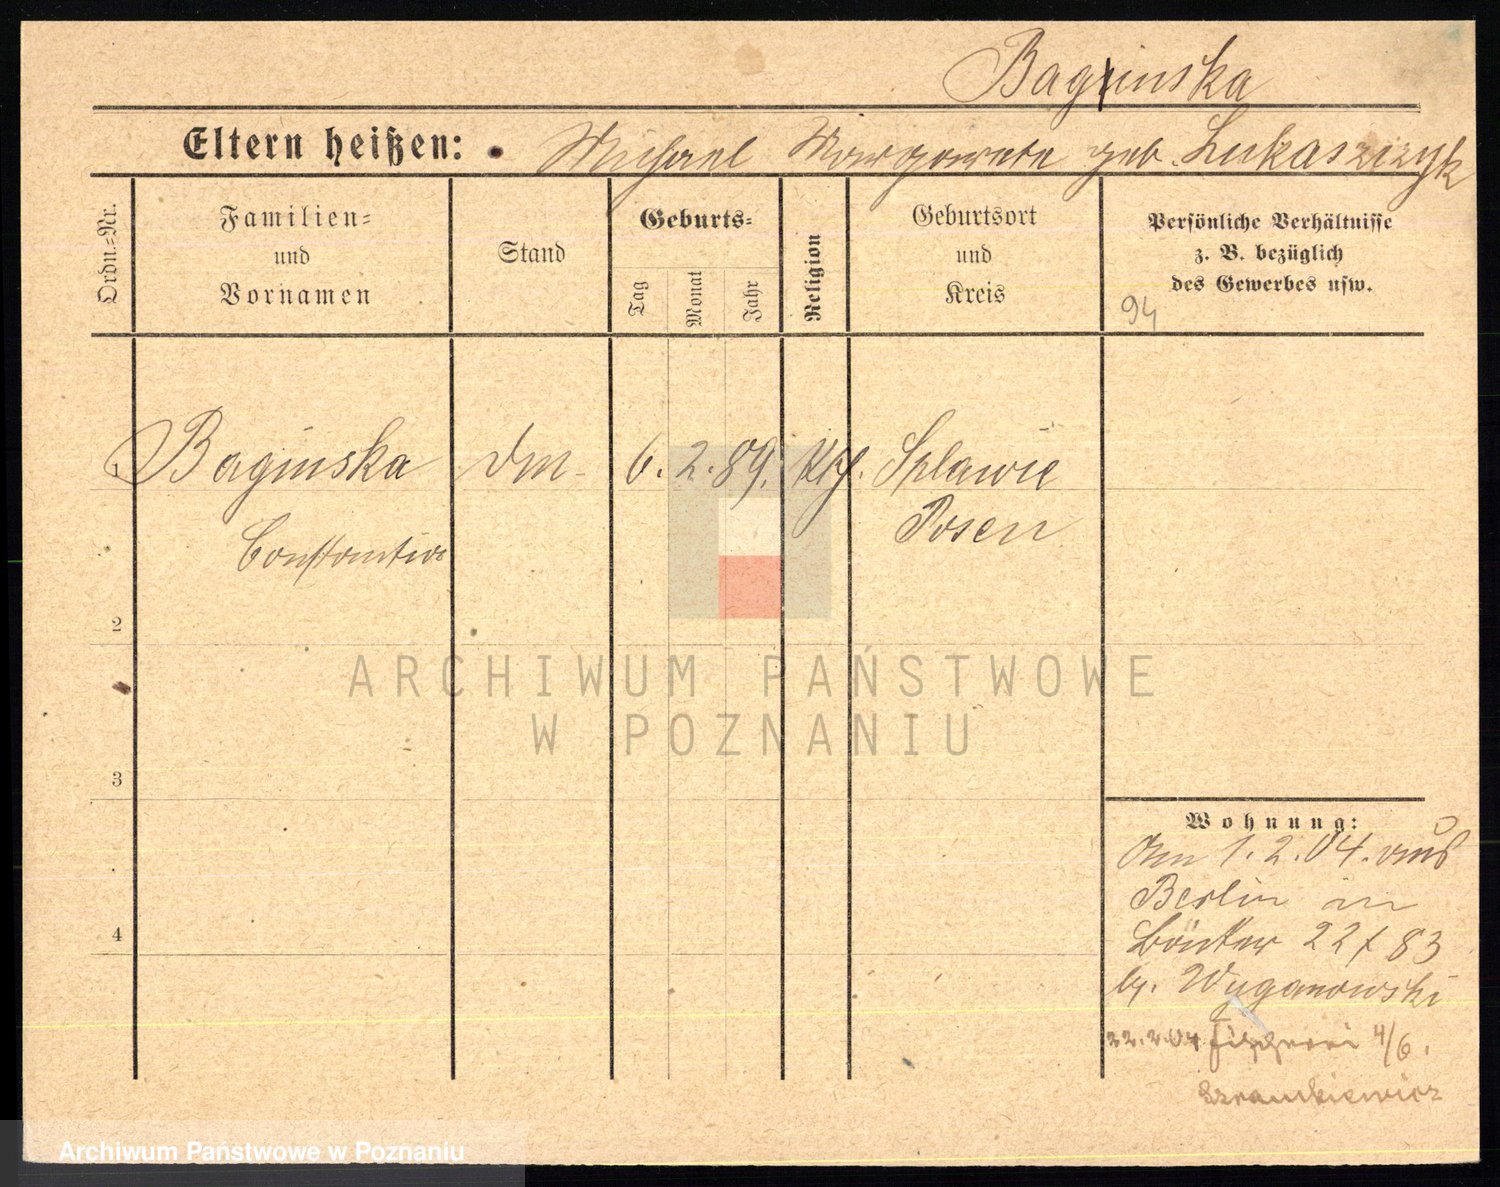 Baginska
Eltern heißen: Michael Margarete geb. Lukaszczyk
Ordn.=Nr.
Familien=
und
Vornamen
Stand
Geburts=
Tag
Monat
Jahr
Religion
Geburtsort
und
Kreis
Persönliche Verhältnisse
z. B. bezüglich
des Gewerbes usw.
94
1 Baginska 6. 2. 89. kth. Splawie
Constantia Posen
2
3
4
Wohnung:
Am 1. 2. 04. aus
Berlin in
22/83
b. Wyganowski
22.2.04 Fischerei 4/6.
Szrankiewicz
ARCHIWUM PAŃSTWOWE
W POZNANIU
Archiwum Państwowe w Poznaniu